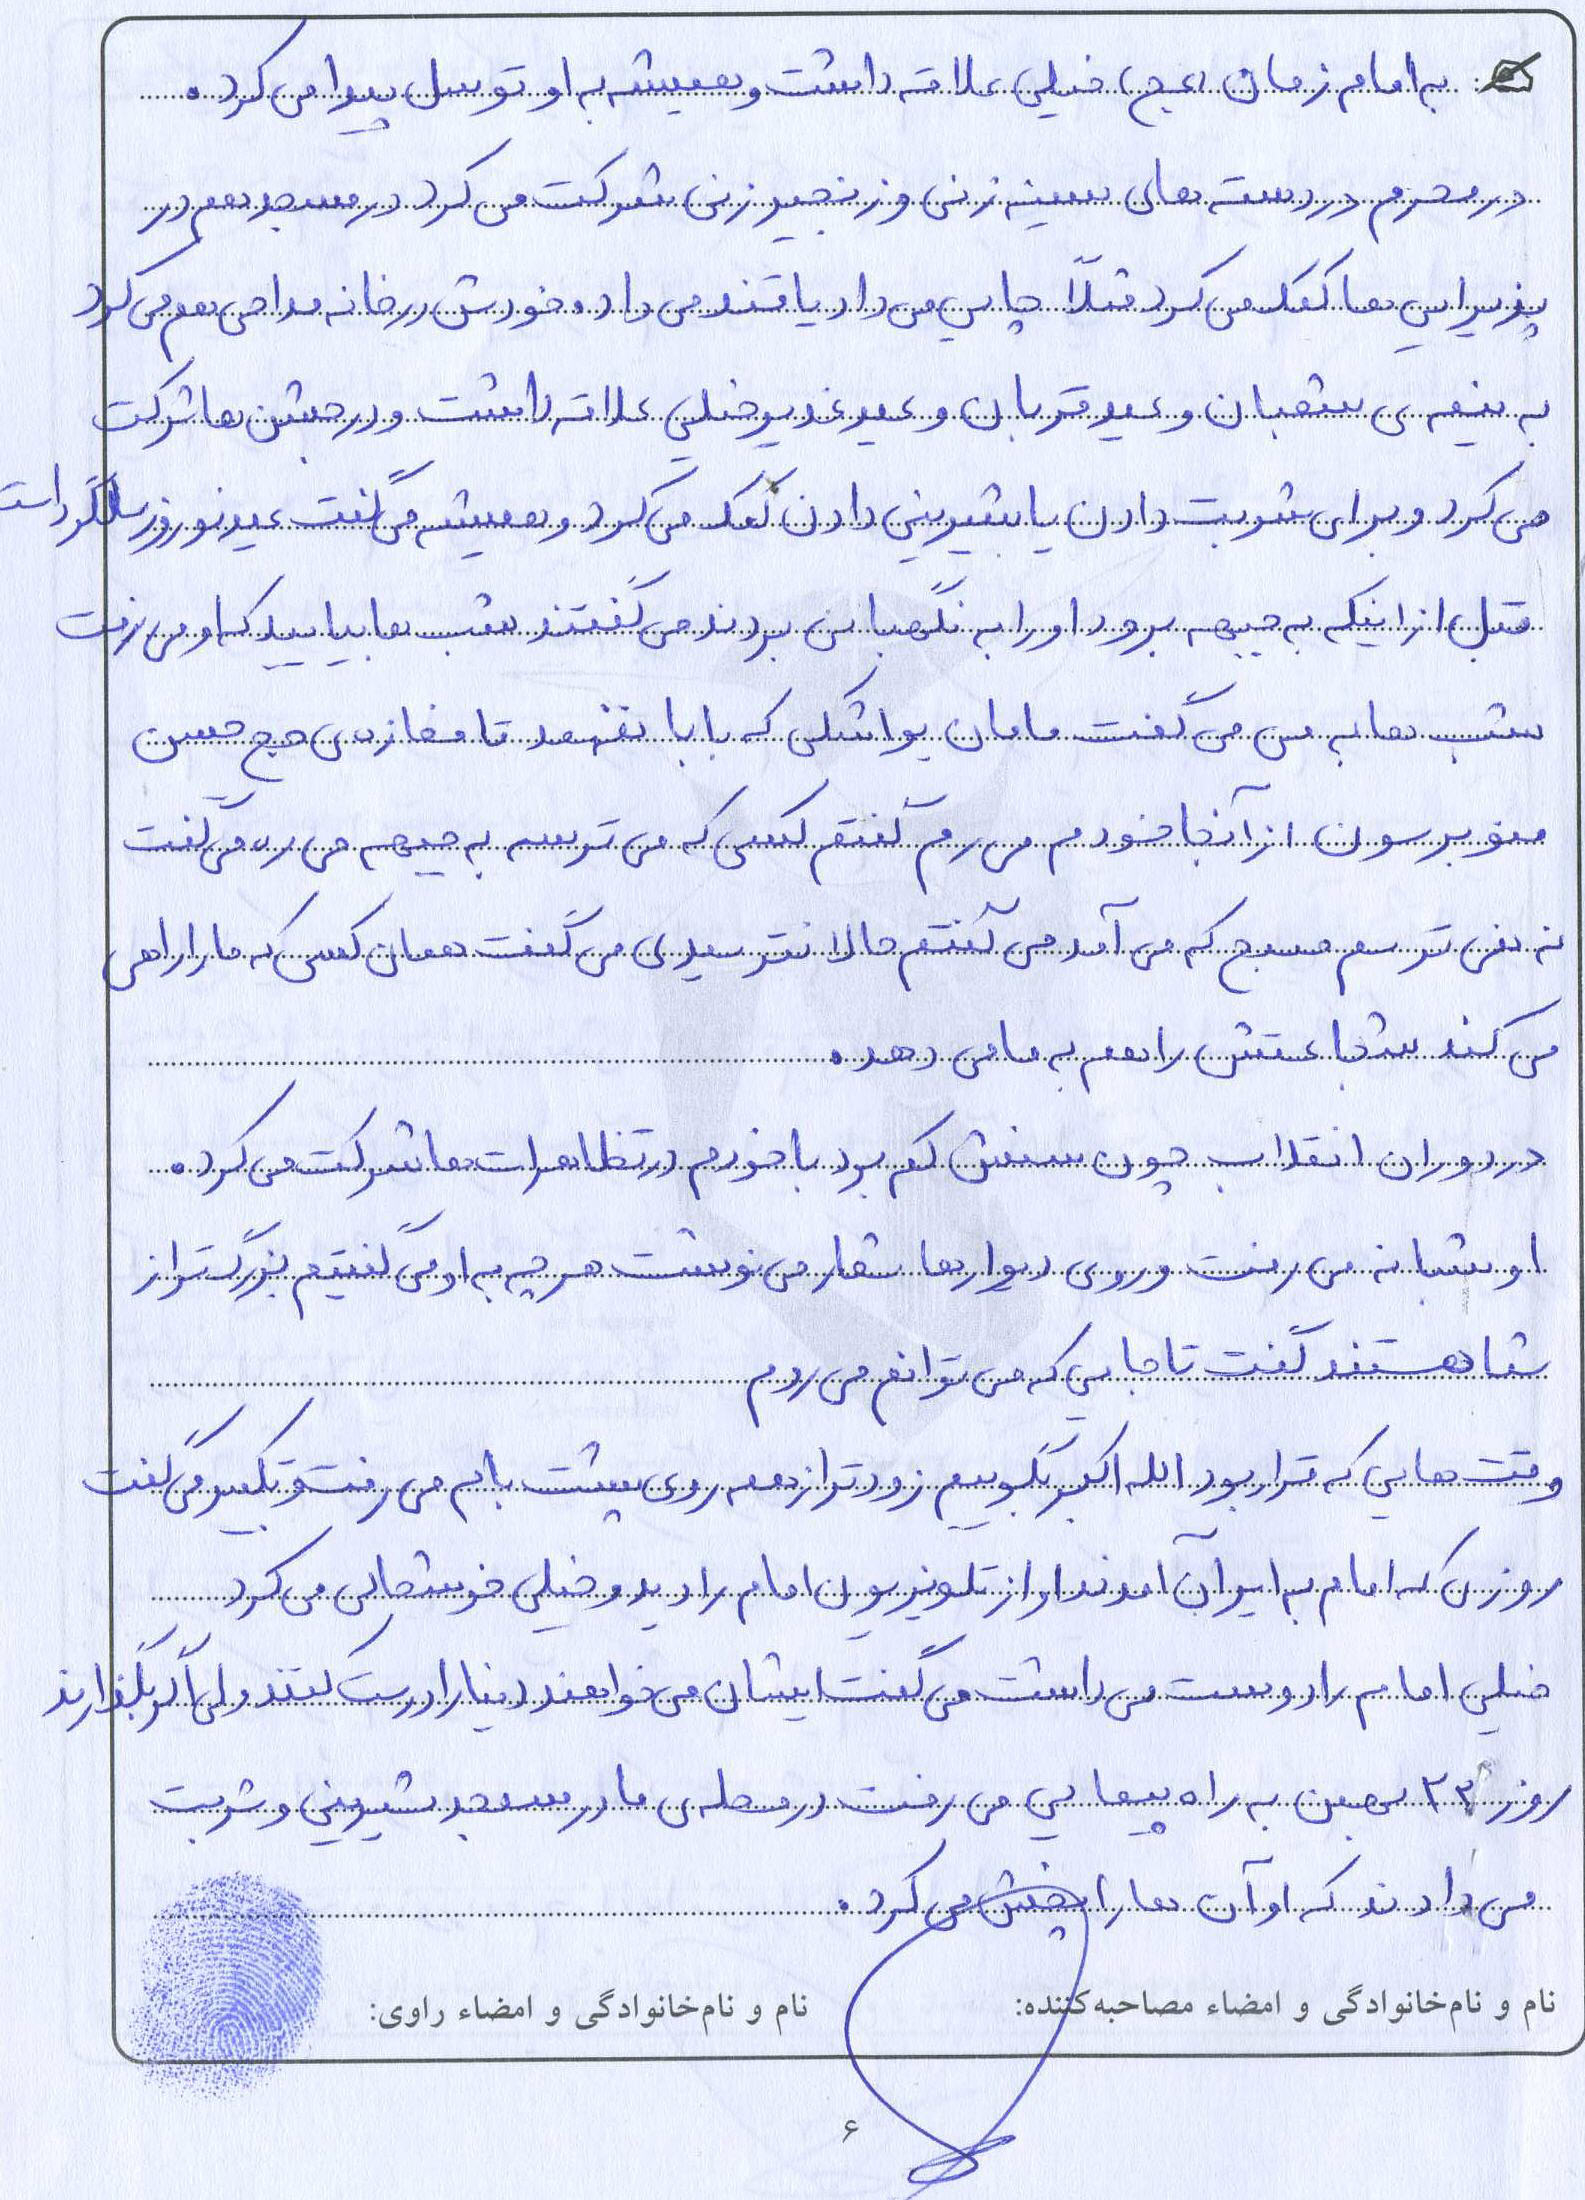 به امام زمان (عج) خیلی علاقه داشت و همیشه به او توسل پیدا می کرد.
در محرم در دسته های سینه زنی و زنجیر زنی شرکت می کرد در مسجد هم در
پذیرایی ها کمک می کرد مثلاً چایی می داد یا قند می داد و خودش در خانه مداحی هم می کرد
به نیمه ی شعبان و عید قربان و عید غدیر خیلی علاقه داشت و در جشن ها شرکت
می کرد و برای شربت دادن یا شیرینی دادن کمک می کرد و همیشه می گفت عید نوروز سالگرد است
قبل از اینکه به جبهه برود او را به نگهبانی بردند می گفتند شب ها بیایید که او می رفت
شب ها به من می گفت مامان یواشکی که بابا نفهمد تا مغازه ی حج حسن
منو برسون از آنجا خودم می رم گفتم کسی که می ترسه به جبهه می ره می گفت
نه نمی ترسم صبح که می آمد می گفتم حالا نترسیدی می گفت همان کسی که ما را راهی
می کند شجاعتش را هم به ما می دهد.
در دوران انقلاب چون سنش کم بود با خودم در تظاهرات ها شرکت می کرد.
او شبانه می رفت و روی دیوارها شعار می نوشت هر چه به او می گفتیم بزرگ تر از
شما هستند گفت تا جایی که می توانم می روم
وقت هایی که قرار بود الله اکبر بگوییم زودتر از همه روی پشت بام می رفت و تکبیر می گفت
روزی که امام به ایران آمدند او از تلویزیون امام را دید و خیلی خوشحالی می کرد
خیلی امام را دوست می داشت می گفت ایشان می خواهند دنیا را درست کنند ولی اگر بگذارند
روز ۲۲ بهمن به راه پیمایی می رفت در محله ی ما در مسجد شیرینی و شربت
می دادند که او آن ها را پخش می کرد.
نام و نام‌خانوادگی و امضاء مصاحبه‌کننده: نام و نام‌خانوادگی و امضاء راوی:
۶